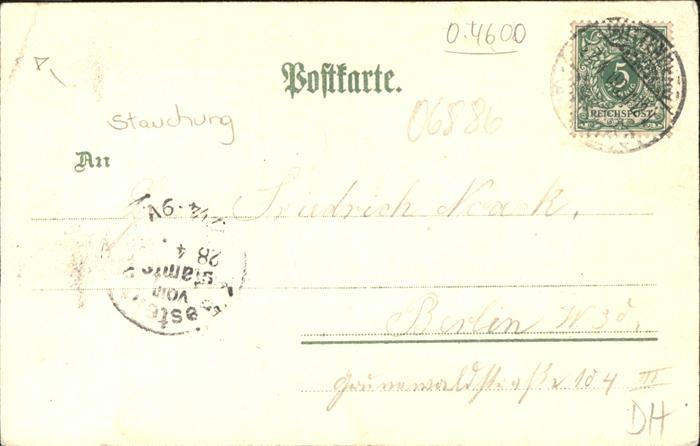 0.4600
5
REICHSPOST
Postkarte.
06886
Stauchung
An
Friedrich Noack,
1/4-9V.
28 4
vom
Berlin W 30,
Grunewaldstraße 104 III
DH